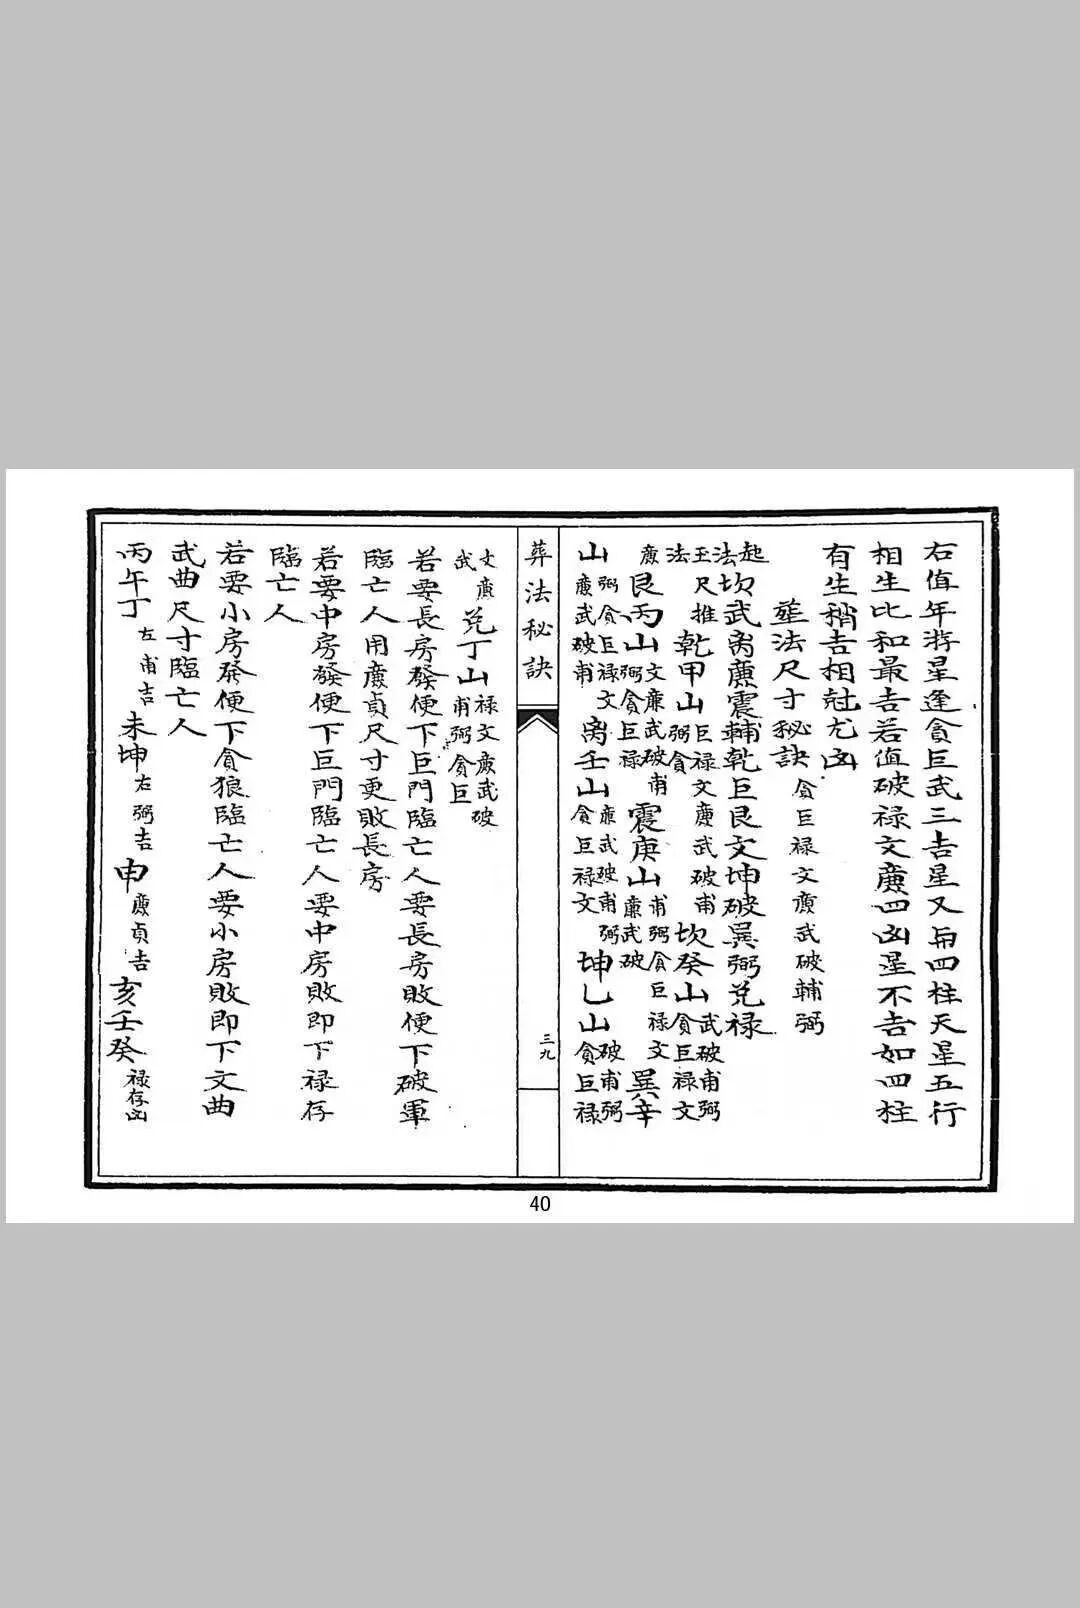 右值年游星逢貪巨武三吉星又與四柱天星五行
相生比和最吉若值破禄文廉四凶星不吉如四柱
有生稍吉相尅尤凶
塟法尺寸秘訣 貪巨禄文廉武破輔弼
起法 坎武离廉震輔乾巨艮文坤破巽弼兑禄
玉尺推法 乾甲山 巨禄文廉武破甫弼貪 坎癸山 武破甫弼貪巨禄文
廉 艮丙山 文廉武破甫弼貪巨禄 震庚山 甫弼貪巨禄文廉武破 巽辛
山 弼貪巨禄文廉武破甫 离壬山 廉武破甫弼貪巨禄文 坤乙山 破甫弼貪巨禄
葬法秘訣
三九
文廉武 兑丁山 禄文廉武破甫弼貪巨
若要長房發便下巨門臨亡人要長房敗便下破軍
臨亡人用廉貞尺寸更敗長房
若要中房發便下巨門臨亡人要中房敗即下禄存
臨亡人
若要小房發便下貪狼臨亡人要小房敗即下文曲
武曲尺寸臨亡人
丙午丁 左甫吉 未坤 右弼吉 申 廉貞吉 亥壬癸 禄存凶
40